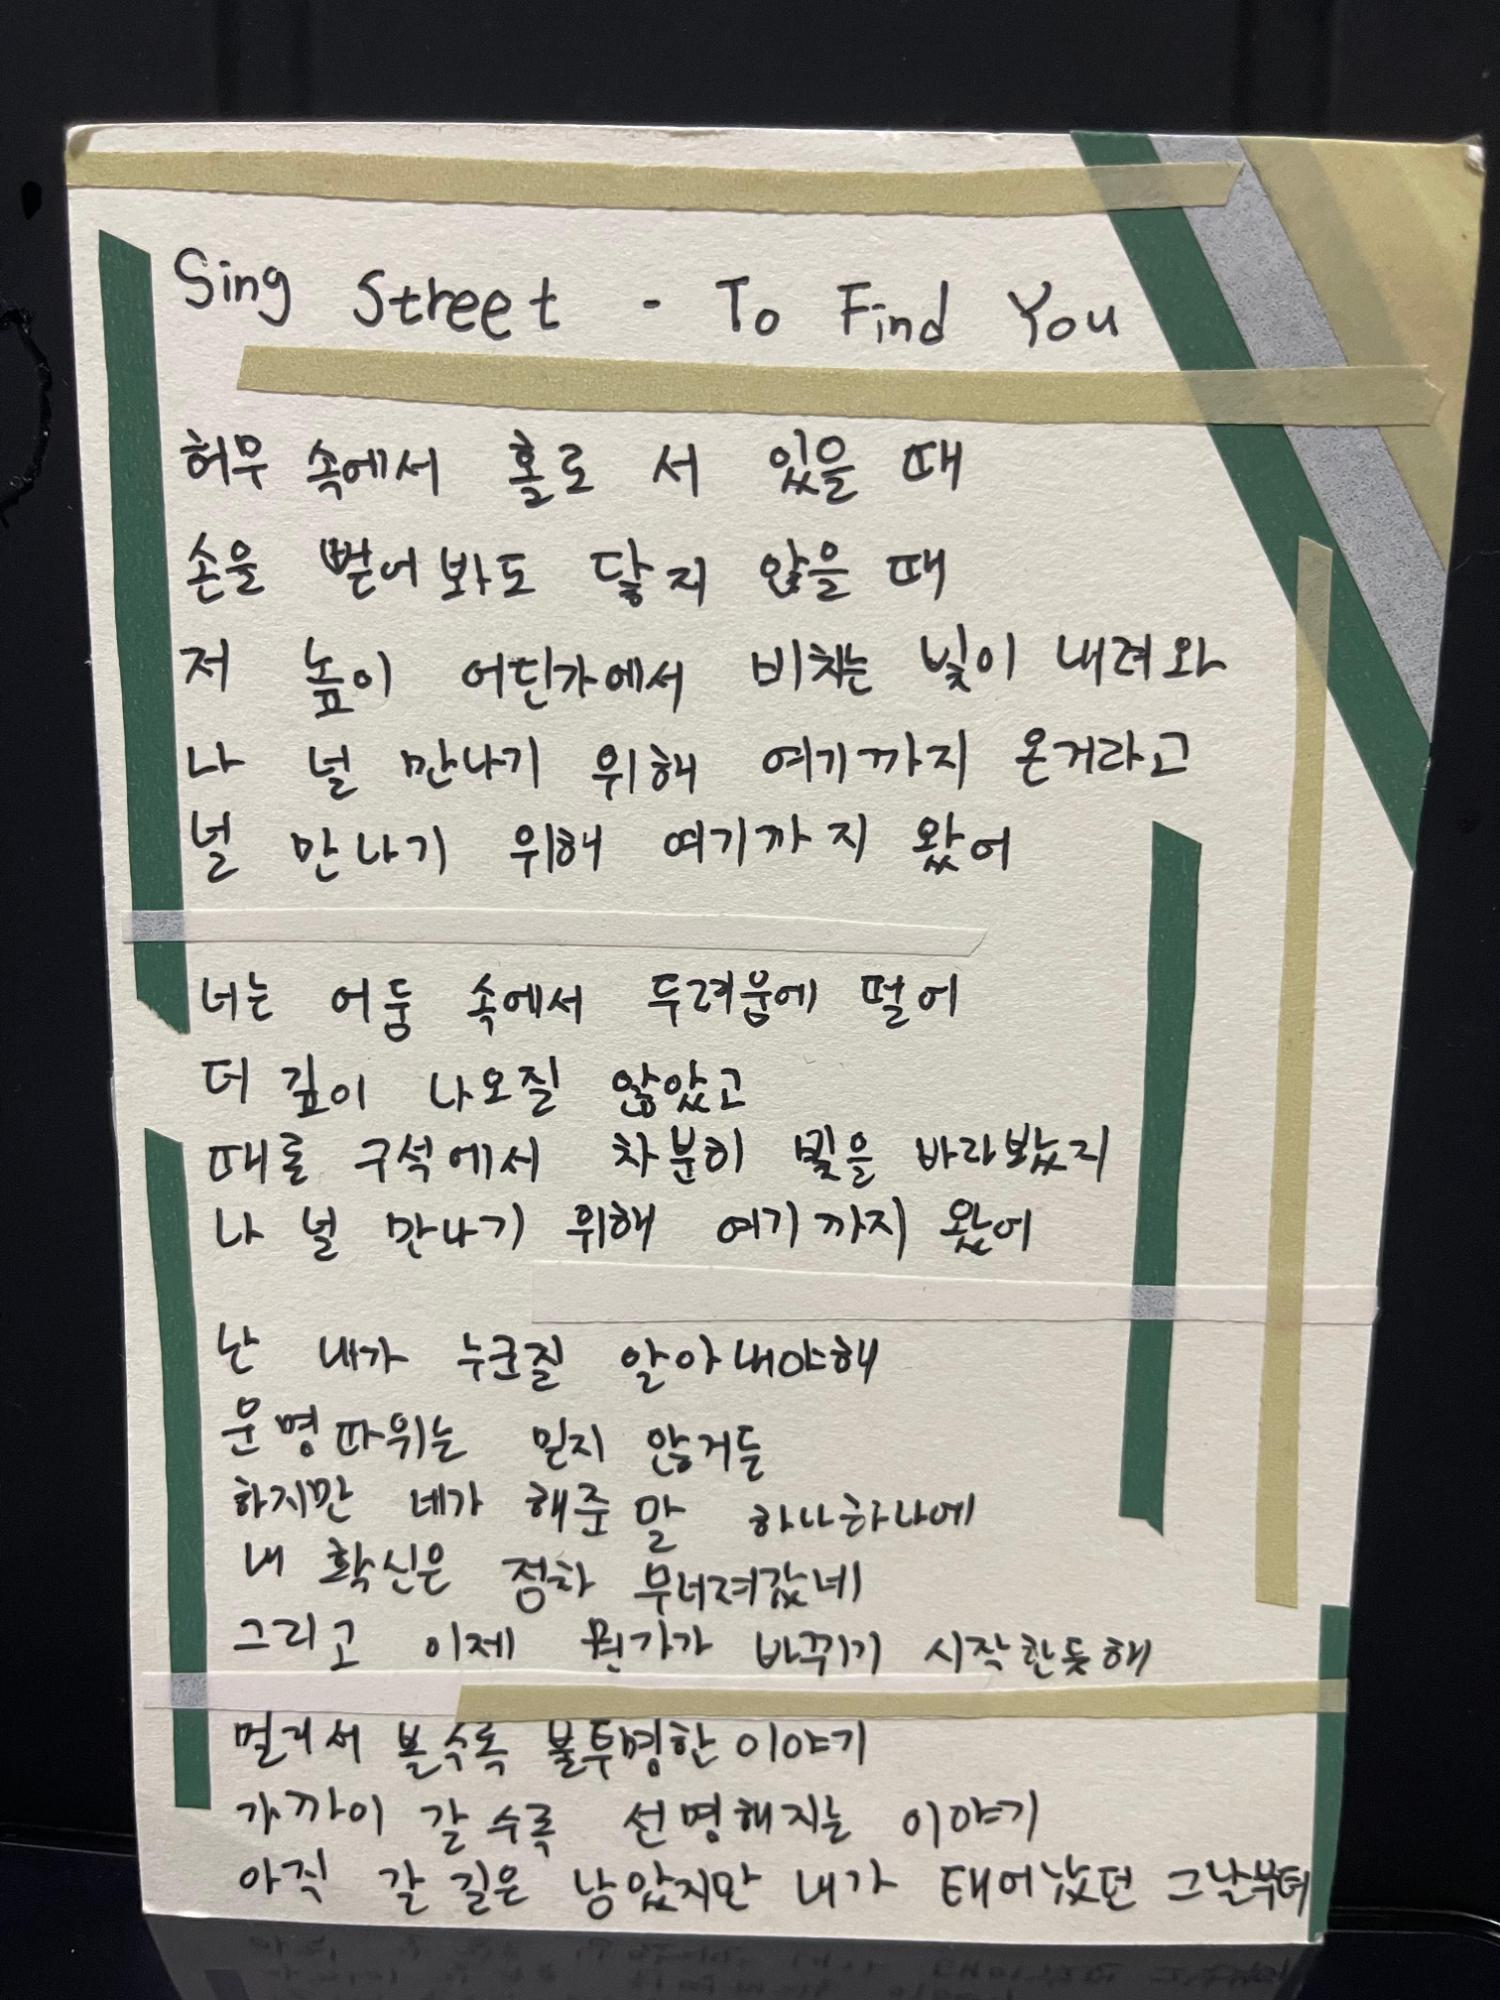 Sing Street - To Find You
허무 속에서 홀로 서 있을 때
손을 뻗어봐도 닿지 않을 때
저 높이 어딘가에서 비치는 빛이 내려와
나 널 만나기 위해 여기까지 온거라고
널 만나기 위해 여기까지 왔어
너는 어둠 속에서 두려움에 떨어
더 깊이 나오질 않았고
때로 구석에서 차분히 빛을 바라봤지
나 널 만나기 위해 여기까지 왔어
난 내가 누군질 알아내야해
운명따위는 믿지 않거든
하지만 네가 해준 말 하나하나에
내 확신은 점차 무너져갔네
그리고 이제 뭔가가 바뀌기 시작한듯해
멀리서 볼수록 불투명한 이야기
가까이 갈수록 선명해지는 이야기
아직 갈 길은 남았지만 내가 태어났던 그날부터